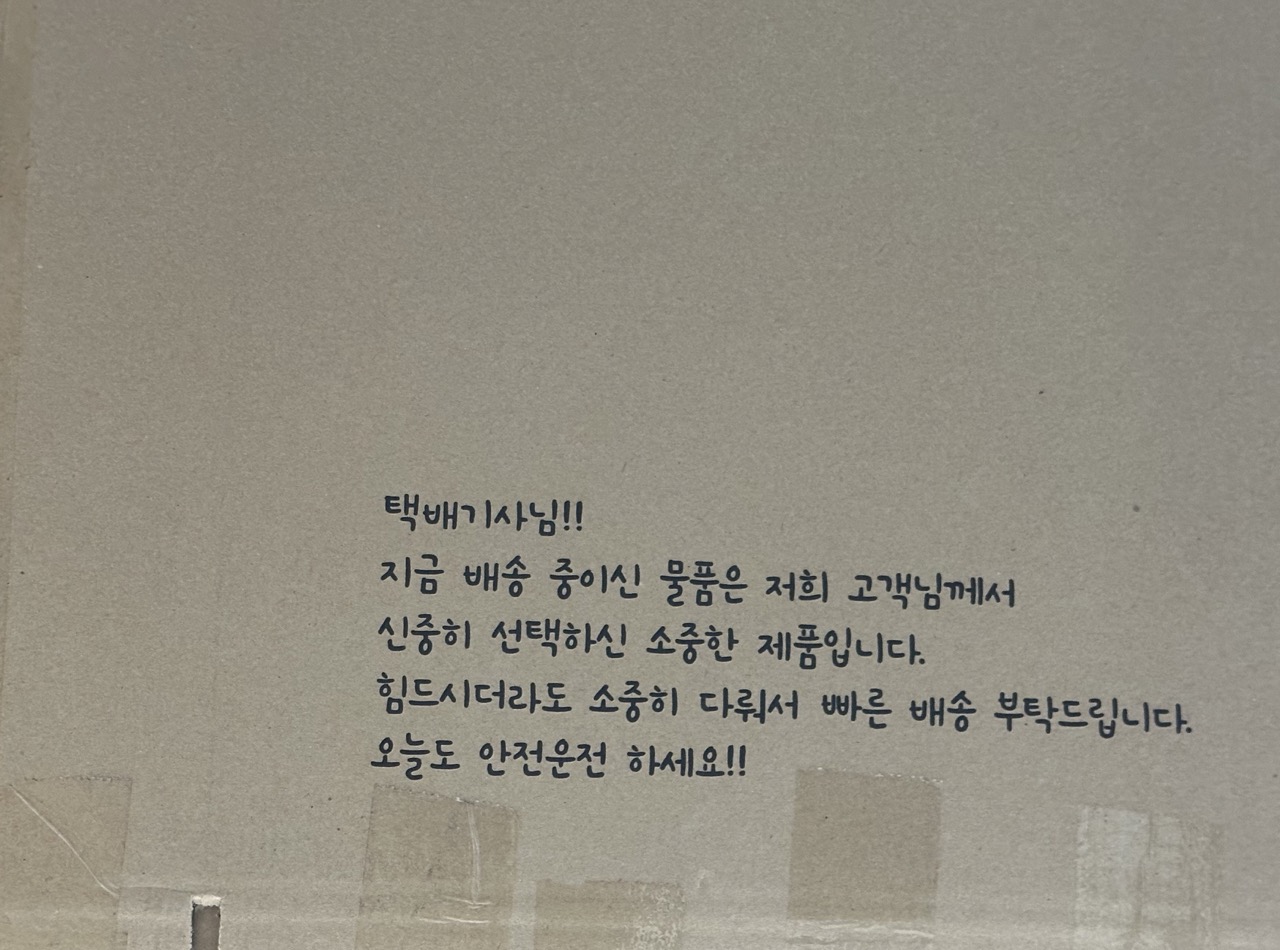 택배기사님!!
지금 배송 중이신 물품은 저희 고객님께서
신중히 선택하신 소중한 제품입니다.
힘드시더라도 소중히 다뤄서 빠른 배송 부탁드립니다.
오늘도 안전운전 하세요!!